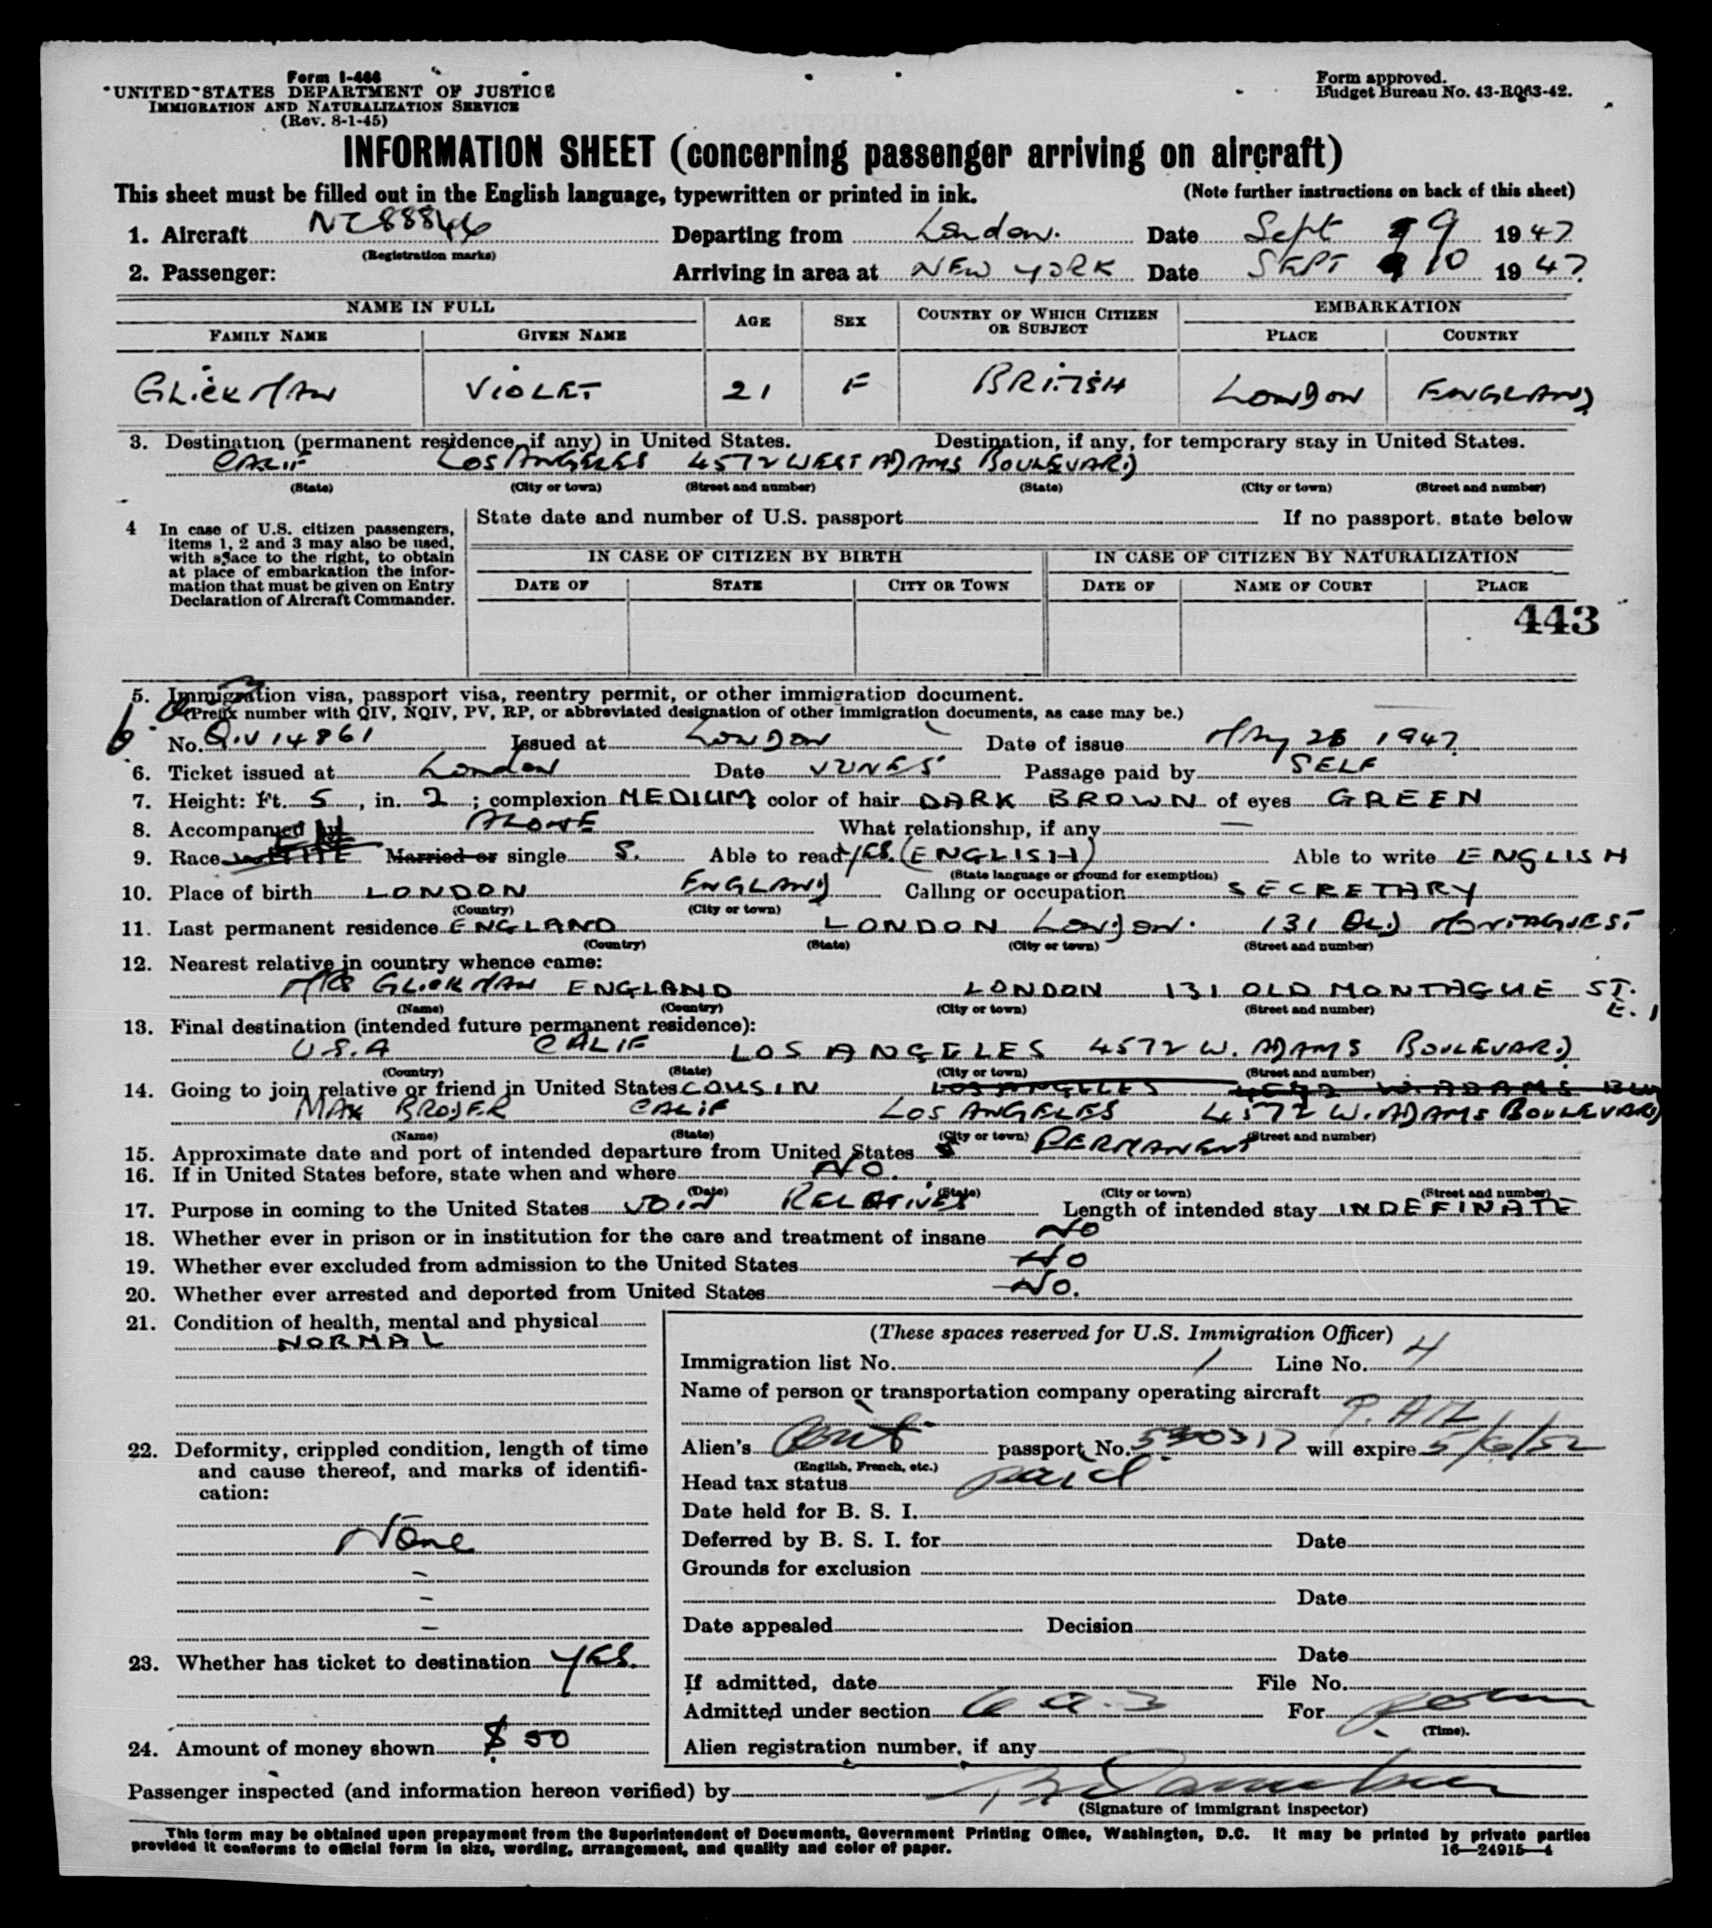 Form I-466
UNITED STATES DEPARTMENT OF JUSTICE
IMMIGRATION AND NATURALIZATION SERVICE
(Rev. 8-1-45)
Form approved.
Budget Bureau No. 43-R063-42.
INFORMATION SHEET (concerning passenger arriving on aircraft)
This sheet must be filled out in the English language, typewritten or printed in ink. (Note further instructions on back of this sheet)
1. Aircraft NC88846 Departing from London. Date Sept 9 1947
(Registration marks)
2. Passenger: Arriving in area at NEW YORK Date SEPT 10 1947
NAME IN FULL AGE SEX COUNTRY OF WHICH CITIZEN OR SUBJECT EMBARKATION
FAMILY NAME GIVEN NAME PLACE COUNTRY
GLICKMAN VIOLET 21 F BRITISH LONDON ENGLAND
3. Destination (permanent residence, if any) in United States. Destination, if any, for temporary stay in United States.
CALIF LOS ANGELES 4572 WEST ADAMS BOULEVARD
(State) (City or town) (Street and number) (State) (City or town) (Street and number)
4 In case of U.S. citizen passengers, items 1, 2 and 3 may also be used, with space to the right, to obtain at place of embarkation the information that must be given on Entry Declaration of Aircraft Commander.
State date and number of U.S. passport If no passport, state below
IN CASE OF CITIZEN BY BIRTH IN CASE OF CITIZEN BY NATURALIZATION
DATE OF STATE CITY OR TOWN DATE OF NAME OF COURT PLACE
443
5. Immigration visa, passport visa, reentry permit, or other immigration document.
(Prefix number with QIV, NQIV, PV, RP, or abbreviated designation of other immigration documents, as case may be.)
No. QIV 14861 Issued at LONDON Date of issue May 28 1947
6. Ticket issued at London Date JUNE 5 Passage paid by SELF
7. Height: Ft. 5, in. 2; complexion MEDIUM color of hair DARK BROWN of eyes GREEN
8. Accompanied by ALONE What relationship, if any —
9. Race WHITE Married or single S. Able to read YES. (ENGLISH) Able to write ENGLISH
(State language or ground for exemption)
10. Place of birth LONDON ENGLAND Calling or occupation SECRETARY
(Country) (City or town)
11. Last permanent residence ENGLAND LONDON LONDON. 131 OLD MONTAGUE ST.
(Country) (State) (City or town) (Street and number)
12. Nearest relative in country whence came:
MRS GLICKMAN ENGLAND LONDON 131 OLD MONTAGUE ST. E.1
(Name) (Country) (City or town) (Street and number)
13. Final destination (intended future permanent residence):
U.S.A CALIF LOS ANGELES 4572 W. ADAMS BOULEVARD
(Country) (State) (City or town) (Street and number)
14. Going to join relative or friend in United States COUSIN LOS ANGELES 4572 W. ADAMS
MAX BRODER CALIF LOS ANGELES 4572 W. ADAMS BOULEVARD
(Name) (State) (City or town) (Street and number)
15. Approximate date and port of intended departure from United States PERMANENT
16. If in United States before, state when and where NO.
(Date) (State) (City or town) (Street and number)
17. Purpose in coming to the United States JOIN RELATIVES Length of intended stay INDEFINATE
18. Whether ever in prison or in institution for the care and treatment of insane NO
19. Whether ever excluded from admission to the United States NO
20. Whether ever arrested and deported from United States NO.
21. Condition of health, mental and physical
NORMAL
22. Deformity, crippled condition, length of time
and cause thereof, and marks of identifi-
cation:
None
–
–
–
23. Whether has ticket to destination YES.
24. Amount of money shown $50
(These spaces reserved for U.S. Immigration Officer)
Immigration list No. 1 Line No. 4
Name of person or transportation company operating aircraft
Alien's passport No. will expire 5/6/52
(English, French, etc.)
Head tax status paid
Date held for B. S. I.
Deferred by B. S. I. for Date
Grounds for exclusion
Date
Date appealed Decision
Date
If admitted, date File No.
Admitted under section 6 a 3 For
(Time).
Alien registration number, if any
Passenger inspected (and information hereon verified) by
(Signature of immigrant inspector)
This form may be obtained upon prepayment from the Superintendent of Documents, Government Printing Office, Washington, D.C. It may be printed by private parties
provided it conforms to official form in size, wording, arrangement, and quality and color of paper. 16—24915-4